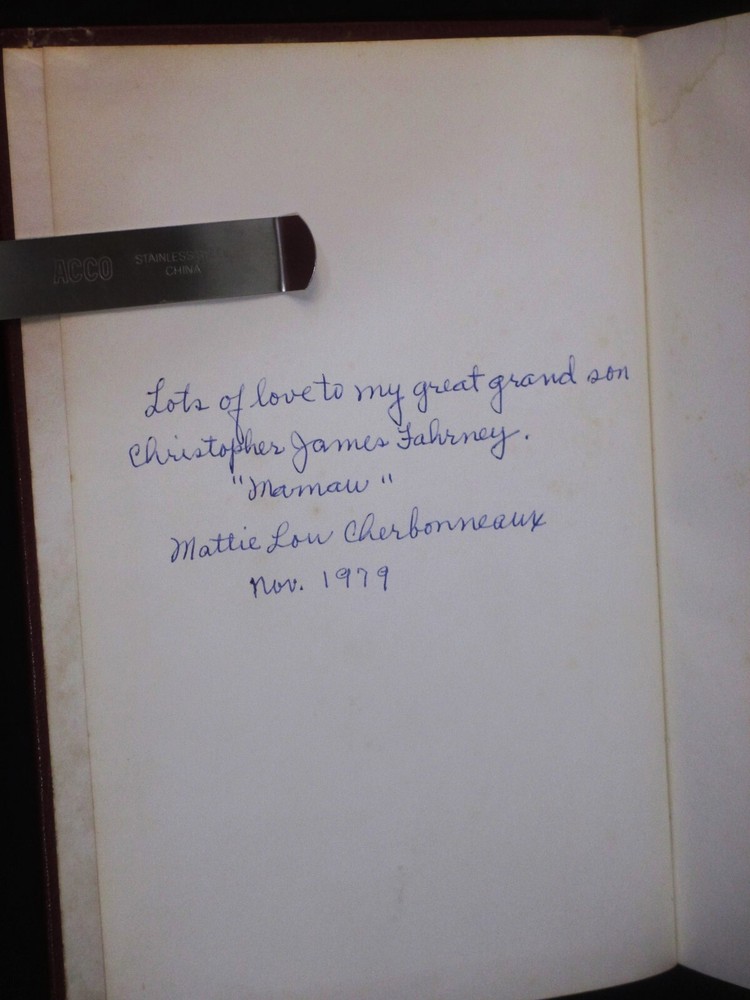 ACCO
STAINLESS
CHINA
Lots of love to my great grand son
Christopher James Fahrney.
"Mamaw"
Mattie Lou Cherbonneaux
Nov. 1979